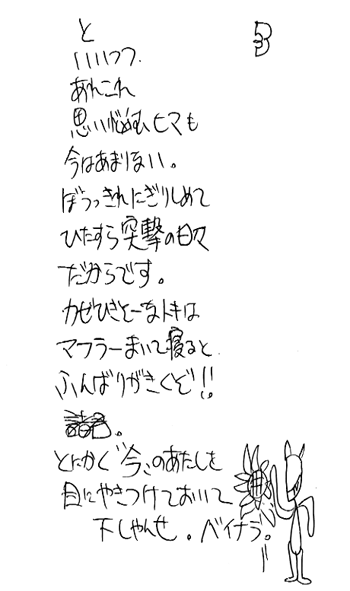 と
いいつつ.
あれこれ
思い悩むヒマも
今はあまりない。
ぼうっきれにぎりしめて
ひたすら突撃の日々
だからです。
カゼひきそーなトキは
マフラーまいて寝ると
ふんばりがきくぞ!!
諸君。
とにかく〝今〟のあたしを
目にやきつけておいて
下しゃんせ。バイナラ。